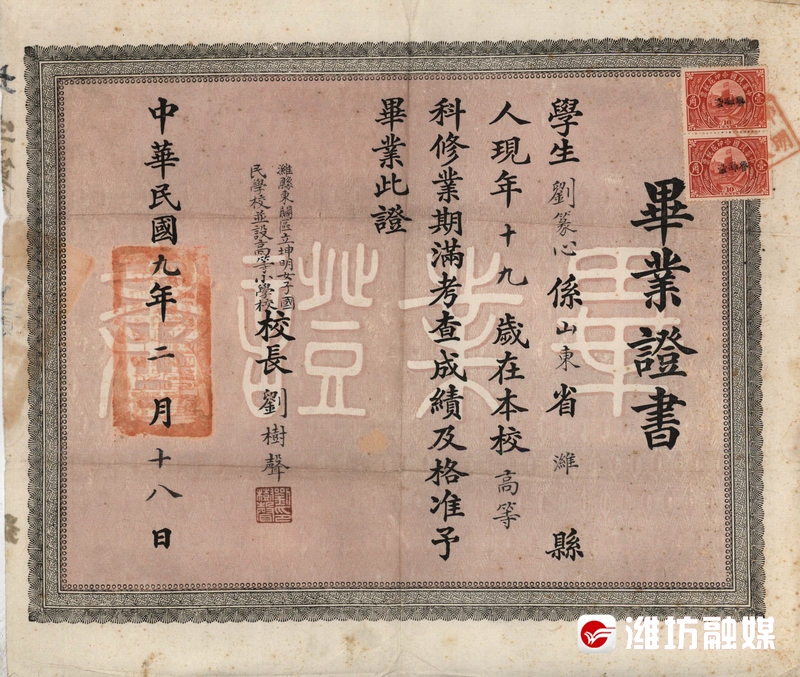 畢業證書
學生劉篆心係山東省濰縣
人現年十九歲在本校高等
科修業期滿考查成績及格准予
畢業此證
濰縣東關區立坤明女子國
民學校並設高等小學校
校長劉樹聲
中華民國九年二月十八日
畢業證書
濰坊融媒